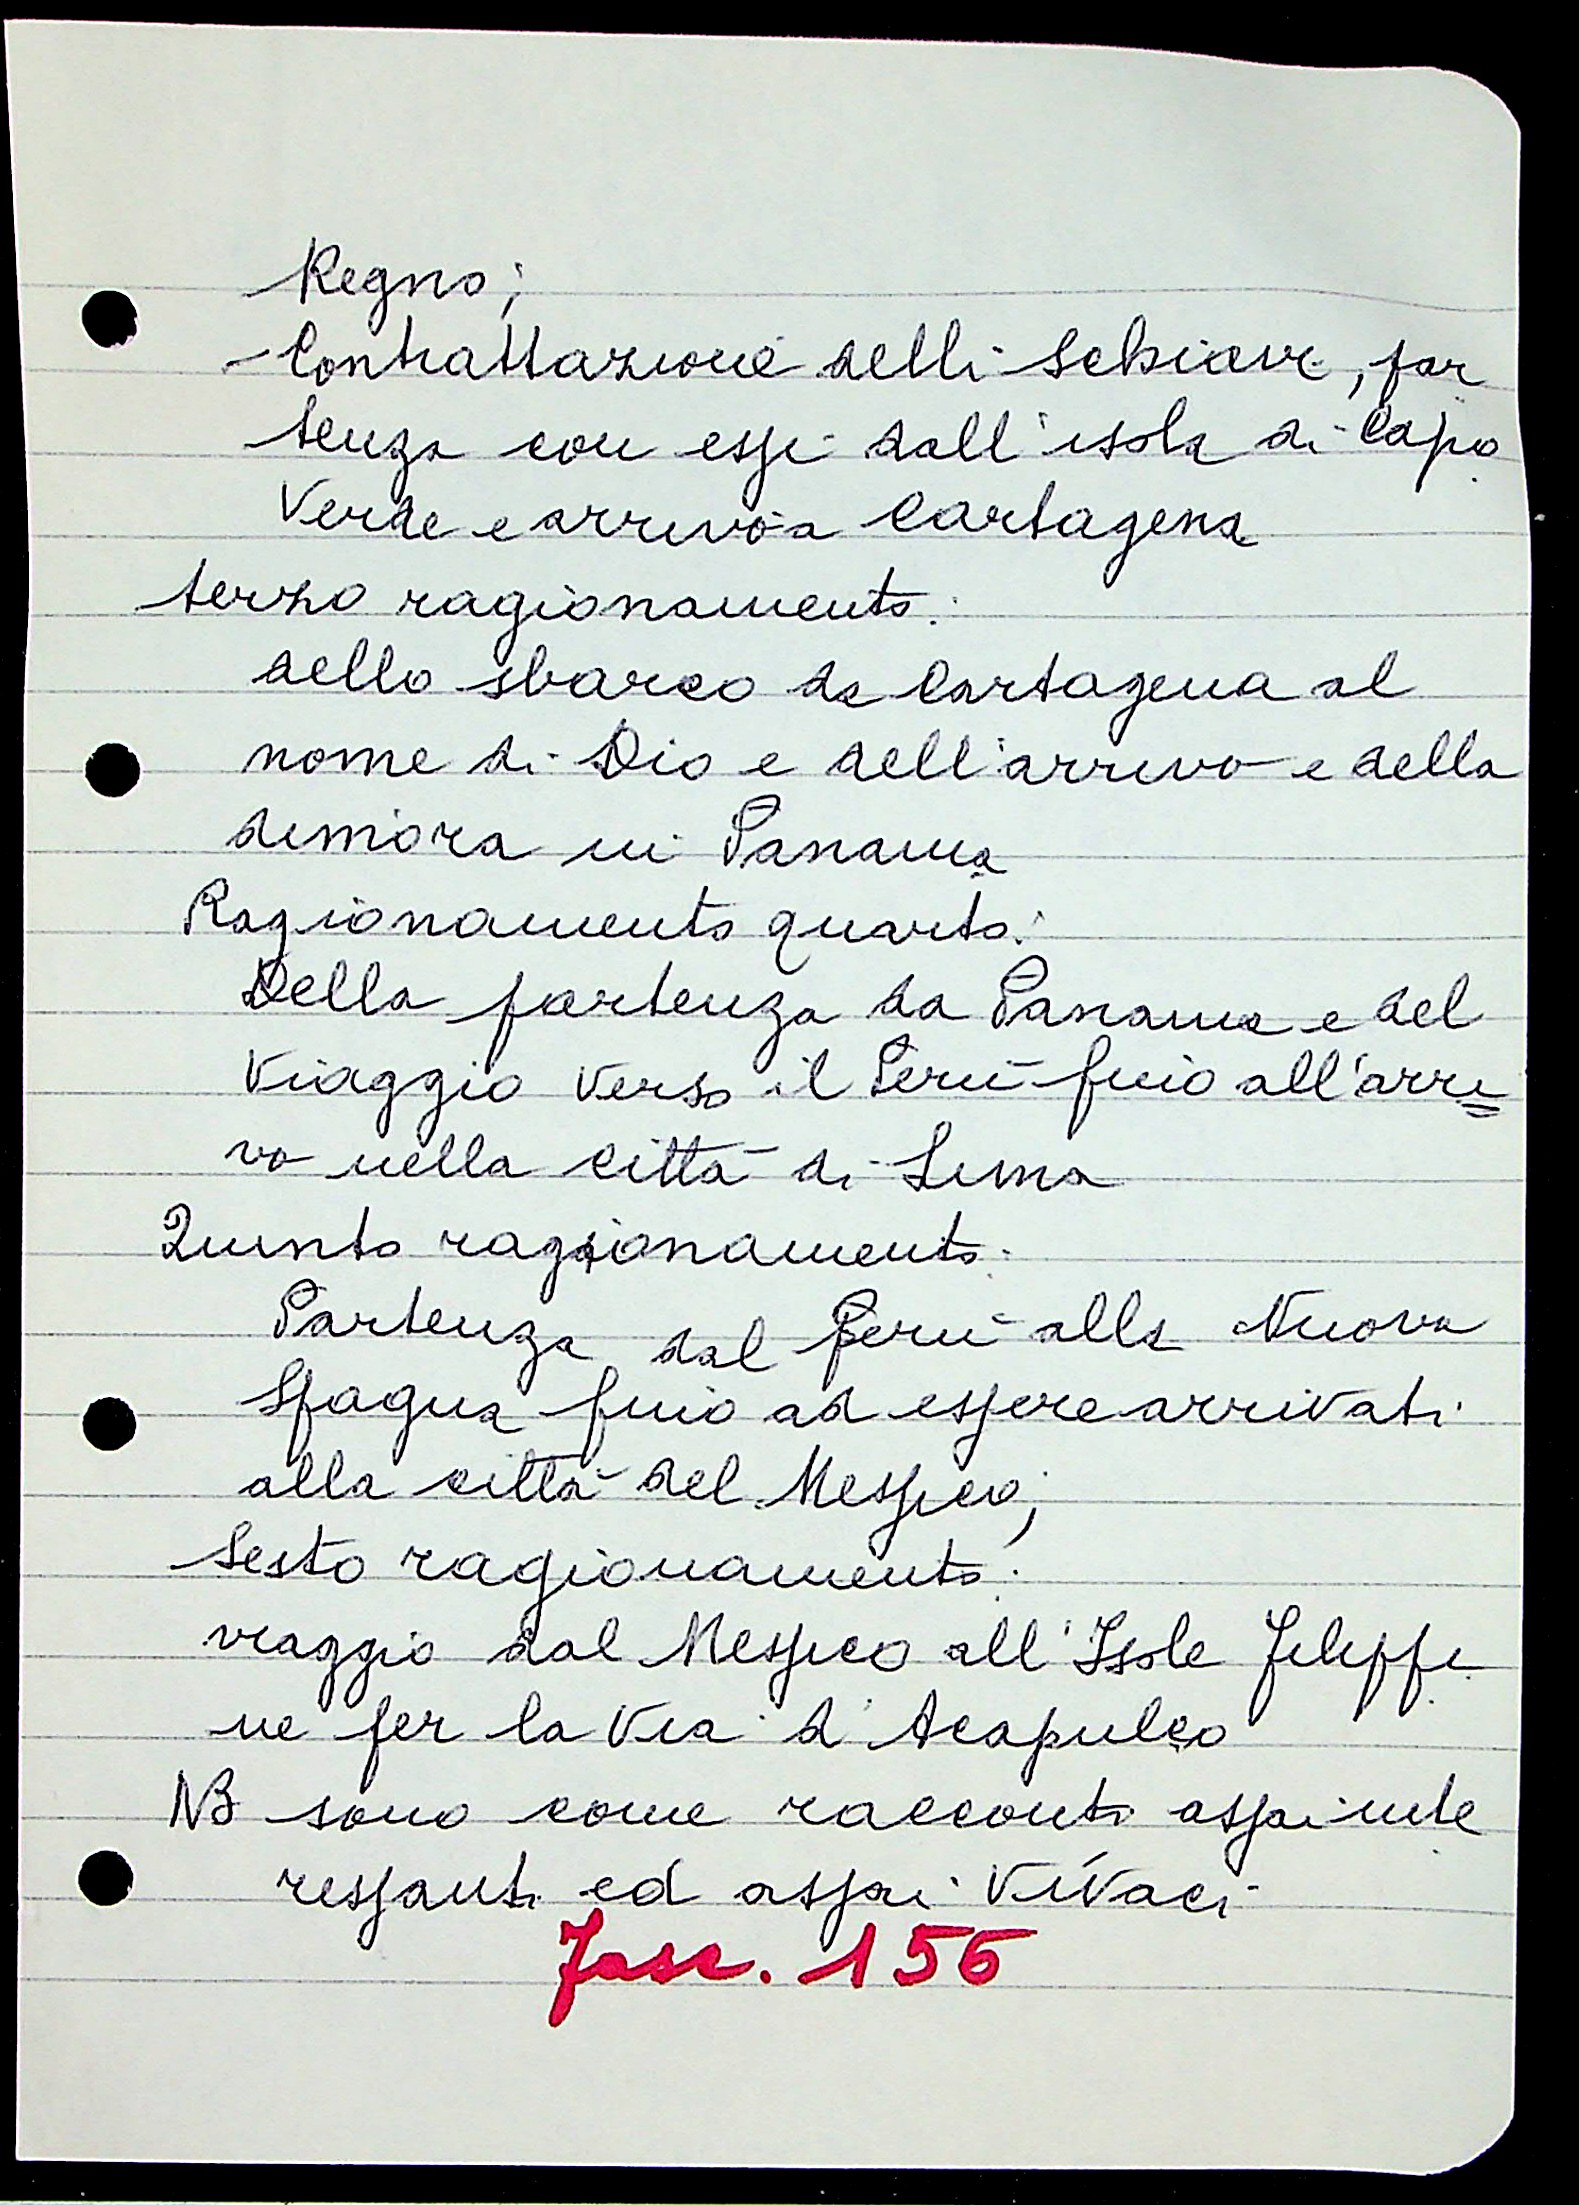 Regno;
Contrattazione delli schiavi, par
tenza con essi dall'isola di Capo
Verde e arrivo a Cartagena
terzo ragionamento:
dello sbarco da Cartagena al
nome di Dio e dell'arrivo e della
dimora in Panama
Ragionamento quarto:
Della partenza da Panama e del
viaggio verso il Perù fino all'arri=
vo nella città di Lima
Quinto ragionamento:
Partenza dal Perù alla Nuova
Spagna fino ad essere arrivati
alla città del Messico;
Sesto ragionamento:
viaggio dal Messico all'Isole Filippi
ne per la via d'Acapulco
NB sono come racconti assai inte
ressanti ed assai vivaci
Fasc. 156